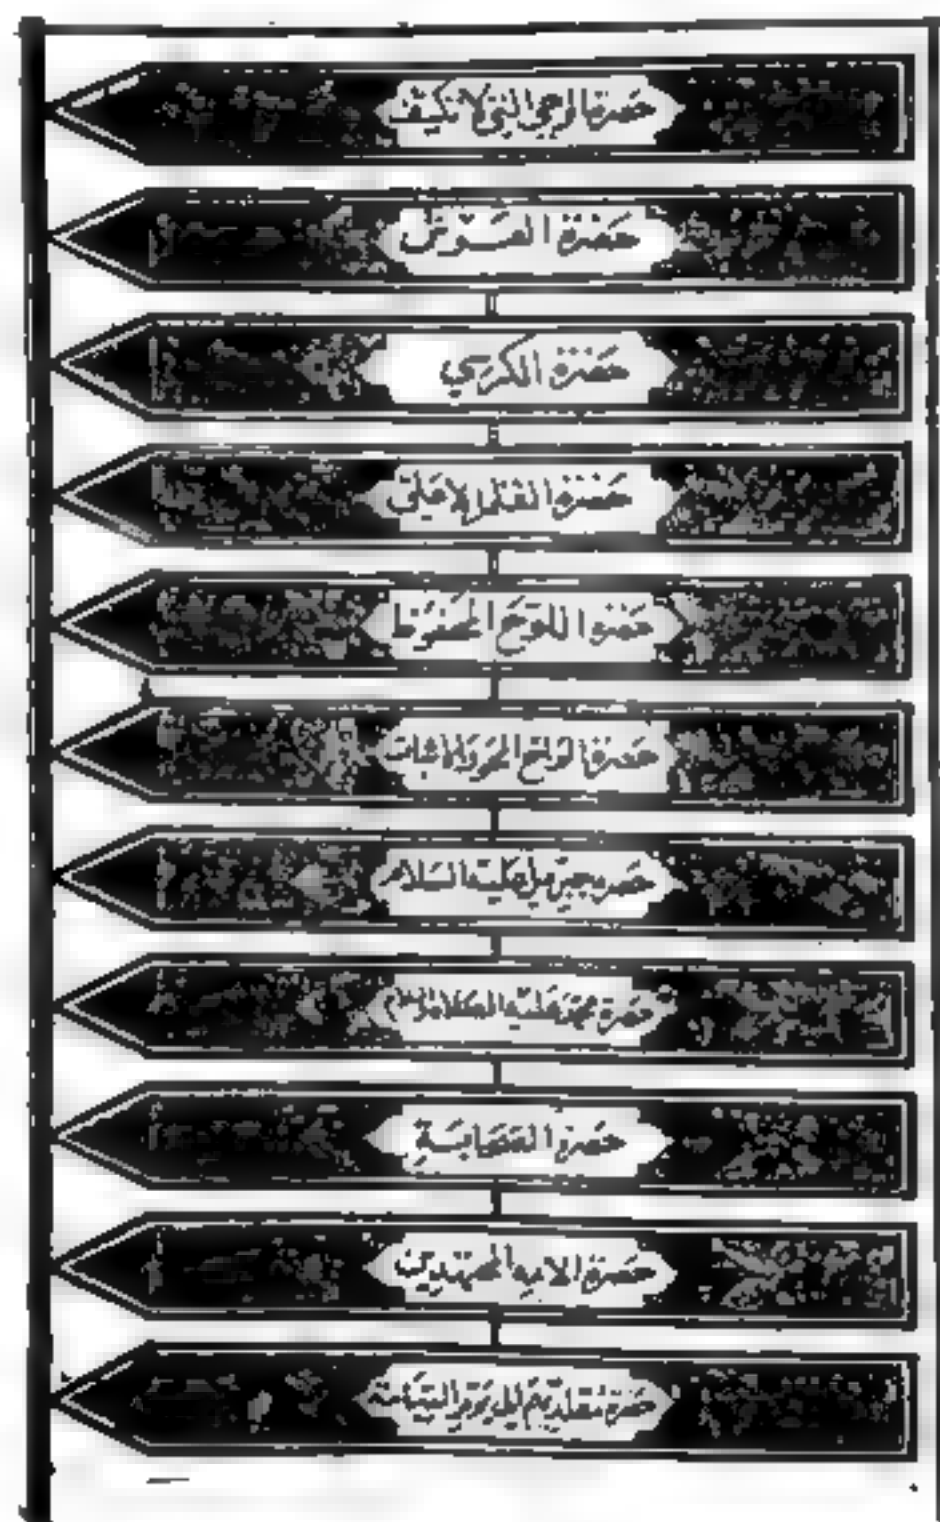 حضرة الوحي التي لا تكيف
حضرة العرش
حضرة الكرسي
حضرة القلم الاعلى
حضرة اللوح المحفوظ
حضرة الواح المحو والاثبات
حضرة جبريل عليه السلام
حضرة محمد عليه الصلاة والسلام
حضرة الصحابة
حضرة الائمة المجتهدين
حضرة مقلديهم الى يوم القيامة